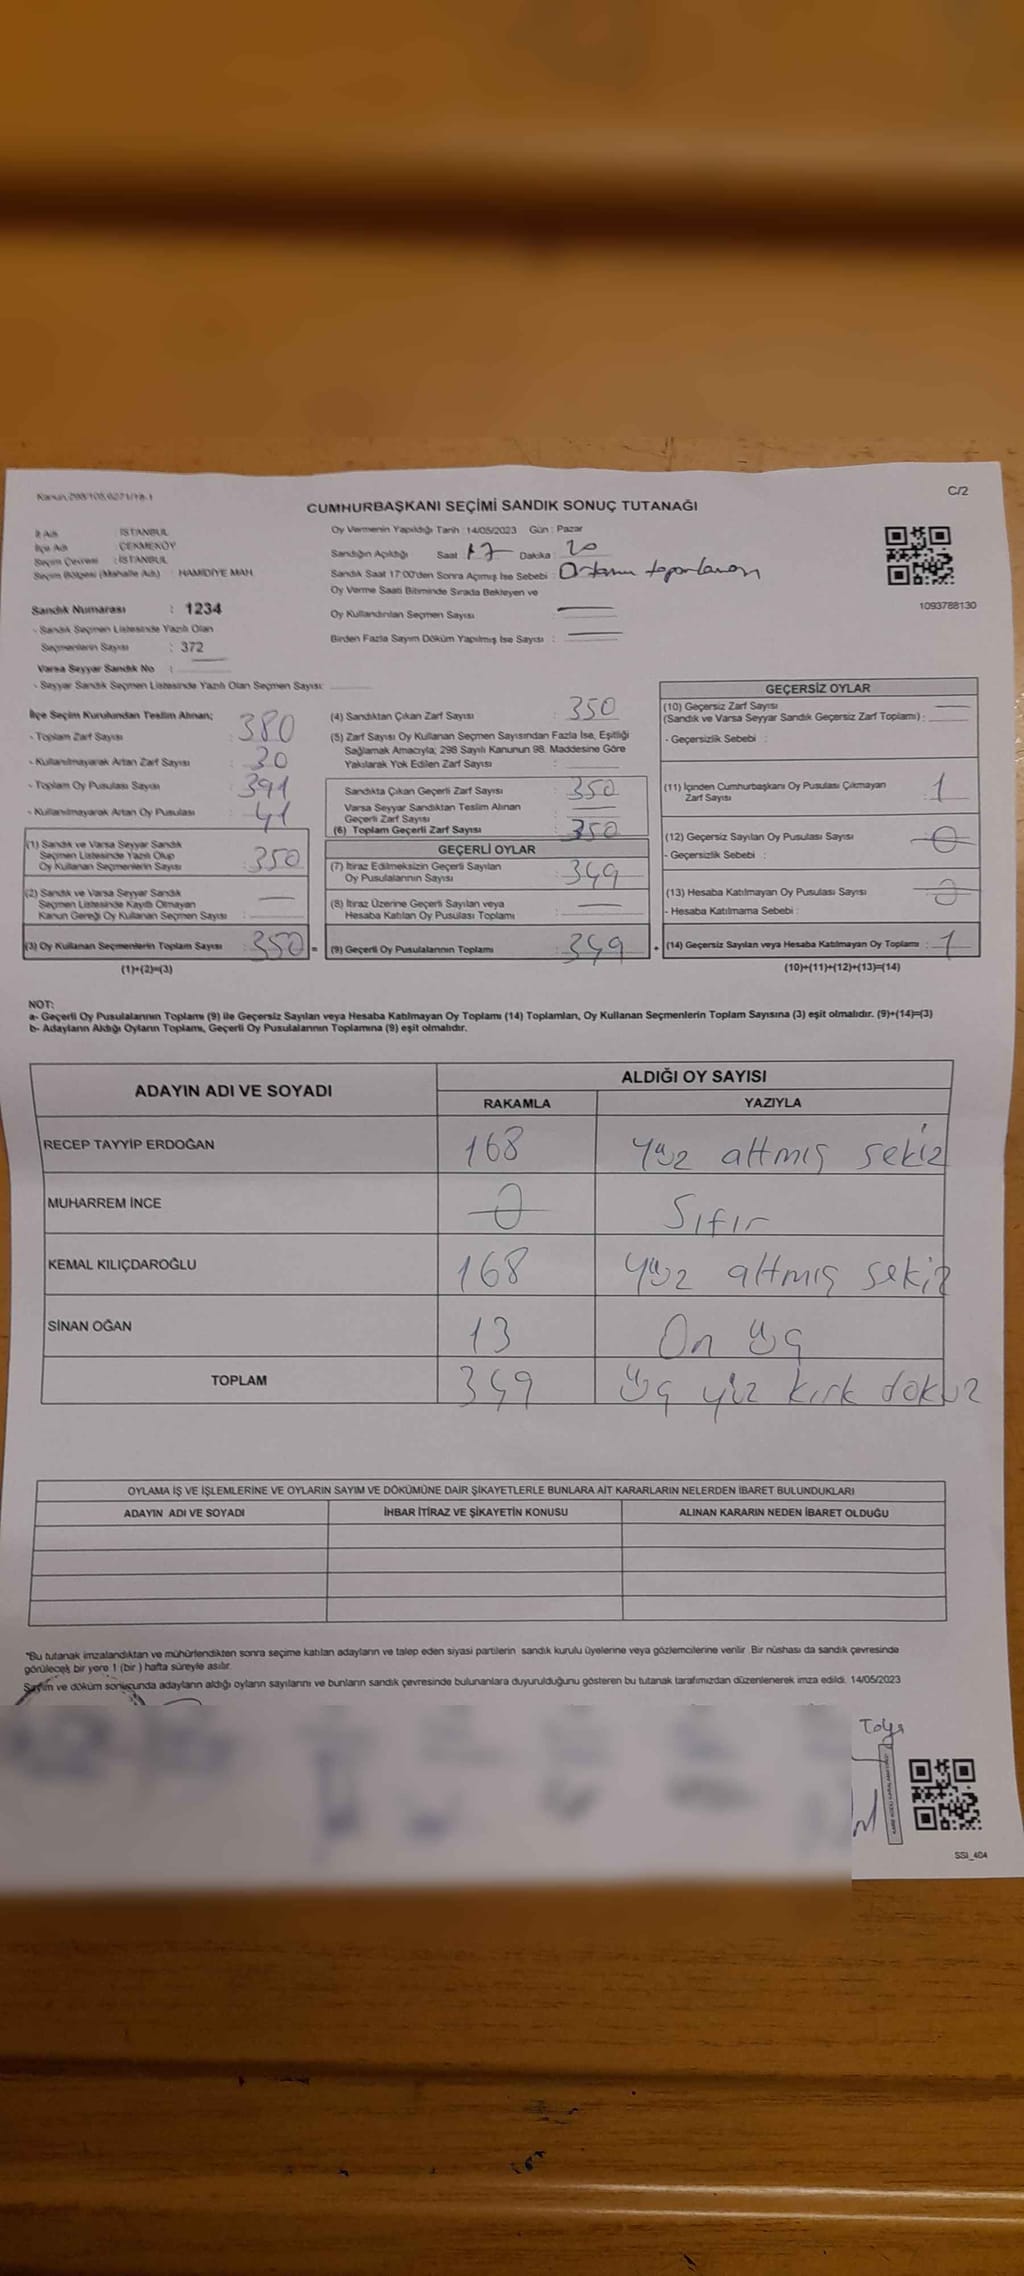 Kanun:298/105,6271/19-1
C/2
CUMHURBAŞKANI SEÇİMİ SANDIK SONUÇ TUTANAĞI
İl Adı : İSTANBUL
İlçe Adı : ÇEKMEKÖY
Seçim Çevresi : İSTANBUL
Seçim Bölgesi (Mahalle Adı) : HAMİDİYE MAH.
Sandık Numarası : 1234
- Sandık Seçmen Listesinde Yazılı Olan
Seçmenlerin Sayısı : 372
Varsa Seyyar Sandık No :
- Seyyar Sandık Seçmen Listesinde Yazılı Olan Seçmen Sayısı:
Oy Vermenin Yapıldığı Tarih :14/05/2023 Gün : Pazar
Sandığın Açıldığı Saat : 17 Dakika : 20
Sandık Saat 17:00'den Sonra Açmış İse Sebebi : Ortamı toparlanan
Oy Verme Saati Bitiminde Sırada Bekleyen ve
Oy Kullandırılan Seçmen Sayısı :
Birden Fazla Sayım Döküm Yapılmış İse Sayısı :
1093788130
İlçe Seçim Kurulundan Teslim Alınan;
- Toplam Zarf Sayısı : 380
- Kullanılmayarak Artan Zarf Sayısı : 30
- Toplam Oy Pusulası Sayısı : 391
- Kullanılmayarak Artan Oy Pusulası : 41
(1) Sandık ve Varsa Seyyar Sandık
Seçmen Listesinde Yazılı Olup
Oy Kullanan Seçmenlerin Sayısı : 350
(2) Sandık ve Varsa Seyyar Sandık
Seçmen Listesinde Kayıtlı Olmayan
Kanun Gereği Oy Kullanan Seçmen Sayısı :
(3) Oy Kullanan Seçmenlerin Toplam Sayısı : 350 =
(1)+(2)=(3)
(4) Sandıktan Çıkan Zarf Sayısı : 350
(5) Zarf Sayısı Oy Kullanan Seçmen Sayısından Fazla İse, Eşitliği
Sağlamak Amacıyla; 298 Sayılı Kanunun 98. Maddesine Göre
Yakılarak Yok Edilen Zarf Sayısı :
Sandıkta Çıkan Geçerli Zarf Sayısı : 350
Varsa Seyyar Sandıktan Teslim Alınan
Geçerli Zarf Sayısı :
(6) Toplam Geçerli Zarf Sayısı : 350
GEÇERLİ OYLAR
(7) İtiraz Edilmeksizin Geçerli Sayılan
Oy Pusulalarının Sayısı : 349
(8) İtiraz Üzerine Geçerli Sayılan veya
Hesaba Katılan Oy Pusulası Toplamı :
(9) Geçerli Oy Pusulalarının Toplamı : 349 +
GEÇERSİZ OYLAR
(10) Geçersiz Zarf Sayısı
(Sandık ve Varsa Seyyar Sandık Geçersiz Zarf Toplamı) :
- Geçersizlik Sebebi :
(11) İçinden Cumhurbaşkanı Oy Pusulası Çıkmayan
Zarf Sayısı : 1
(12) Geçersiz Sayılan Oy Pusulası Sayısı : 0
- Geçersizlik Sebebi :
(13) Hesaba Katılmayan Oy Pusulası Sayısı : 0
- Hesaba Katılmama Sebebi :
(14) Geçersiz Sayılan veya Hesaba Katılmayan Oy Toplamı : 1
(10)+(11)+(12)+(13)=(14)
NOT:
a- Geçerli Oy Pusulalarının Toplamı (9) ile Geçersiz Sayılan veya Hesaba Katılmayan Oy Toplamı (14) Toplamları, Oy Kullanan Seçmenlerin Toplam Sayısına (3) eşit olmalıdır. (9)+(14)=(3)
b- Adayların Aldığı Oyların Toplamı, Geçerli Oy Pusulalarının Toplamına (9) eşit olmalıdır.
ADAYIN ADI VE SOYADI
ALDIĞI OY SAYISI
RAKAMLA YAZIYLA
RECEP TAYYİP ERDOĞAN 168 Yüz altmış sekiz
MUHARREM İNCE 0 Sıfır
KEMAL KILIÇDAROĞLU 168 Yüz altmış sekiz
SİNAN OĞAN 13 On üç
TOPLAM 349 Üç yüz kırk dokuz
OYLAMA İŞ VE İŞLEMLERİNE VE OYLARIN SAYIM VE DÖKÜMÜNE DAİR ŞİKAYETLERLE BUNLARA AİT KARARLARIN NELERDEN İBARET BULUNDUKLARI
ADAYIN ADI VE SOYADI İHBAR İTİRAZ VE ŞİKAYETİN KONUSU ALINAN KARARIN NEDEN İBARET OLDUĞU
*Bu tutanak imzalandıktan ve mühürlendikten sonra seçime katılan adayların ve talep eden siyasi partilerin sandık kurulu üyelerine veya gözlemcilerine verilir. Bir nüshası da sandık çevresinde
görülecek bir yere 1 (bir ) hafta süreyle asılır.
Sayım ve döküm sonucunda adayların aldığı oyların sayılarını ve bunların sandık çevresinde bulunanlara duyurulduğunu gösteren bu tutanak tarafımızdan düzenlenerek imza edildi. 14/05/2023
SSI_404